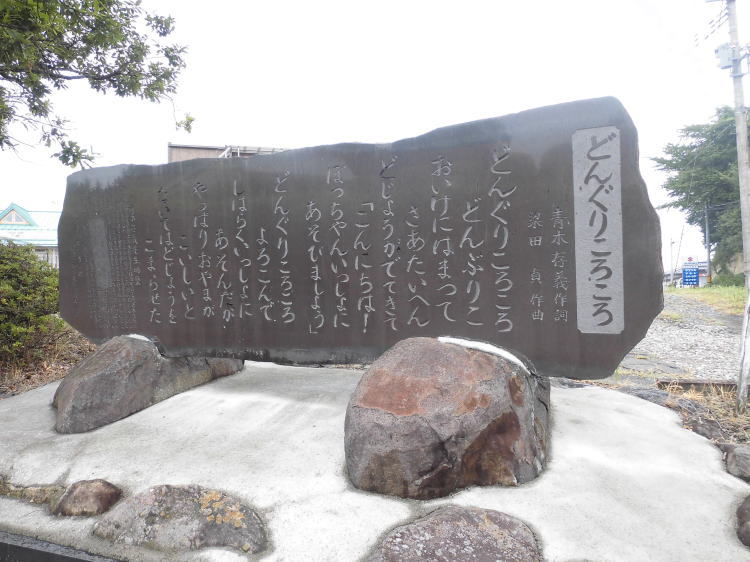 どんぐりころころ
青木存義作詞
梁田 貞作曲
どんぐりころころ
どんぶりこ
おいけにはまって
さあたいへん
どじょうがでてきて
「こんにちは!
ぼっちゃんいっしょに
あそびましょう」
どんぐりころころ
よろこんで
しばらくいっしょに
あそんだが
やっぱりおやまが
こいしいと
ないてはどじょうを
こまらせた